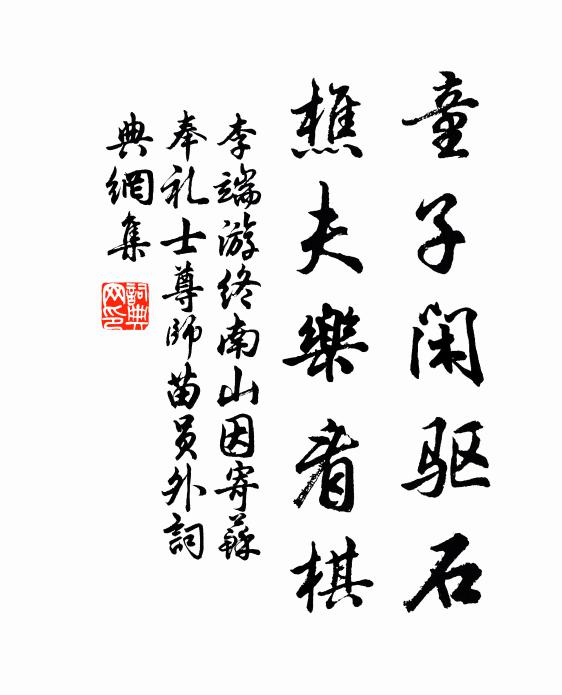 童子闲驱石
樵夫樂看棋
李端游终南山因寄蘇
奉礼士尊師苗员外詞
典網集
詞典
网印